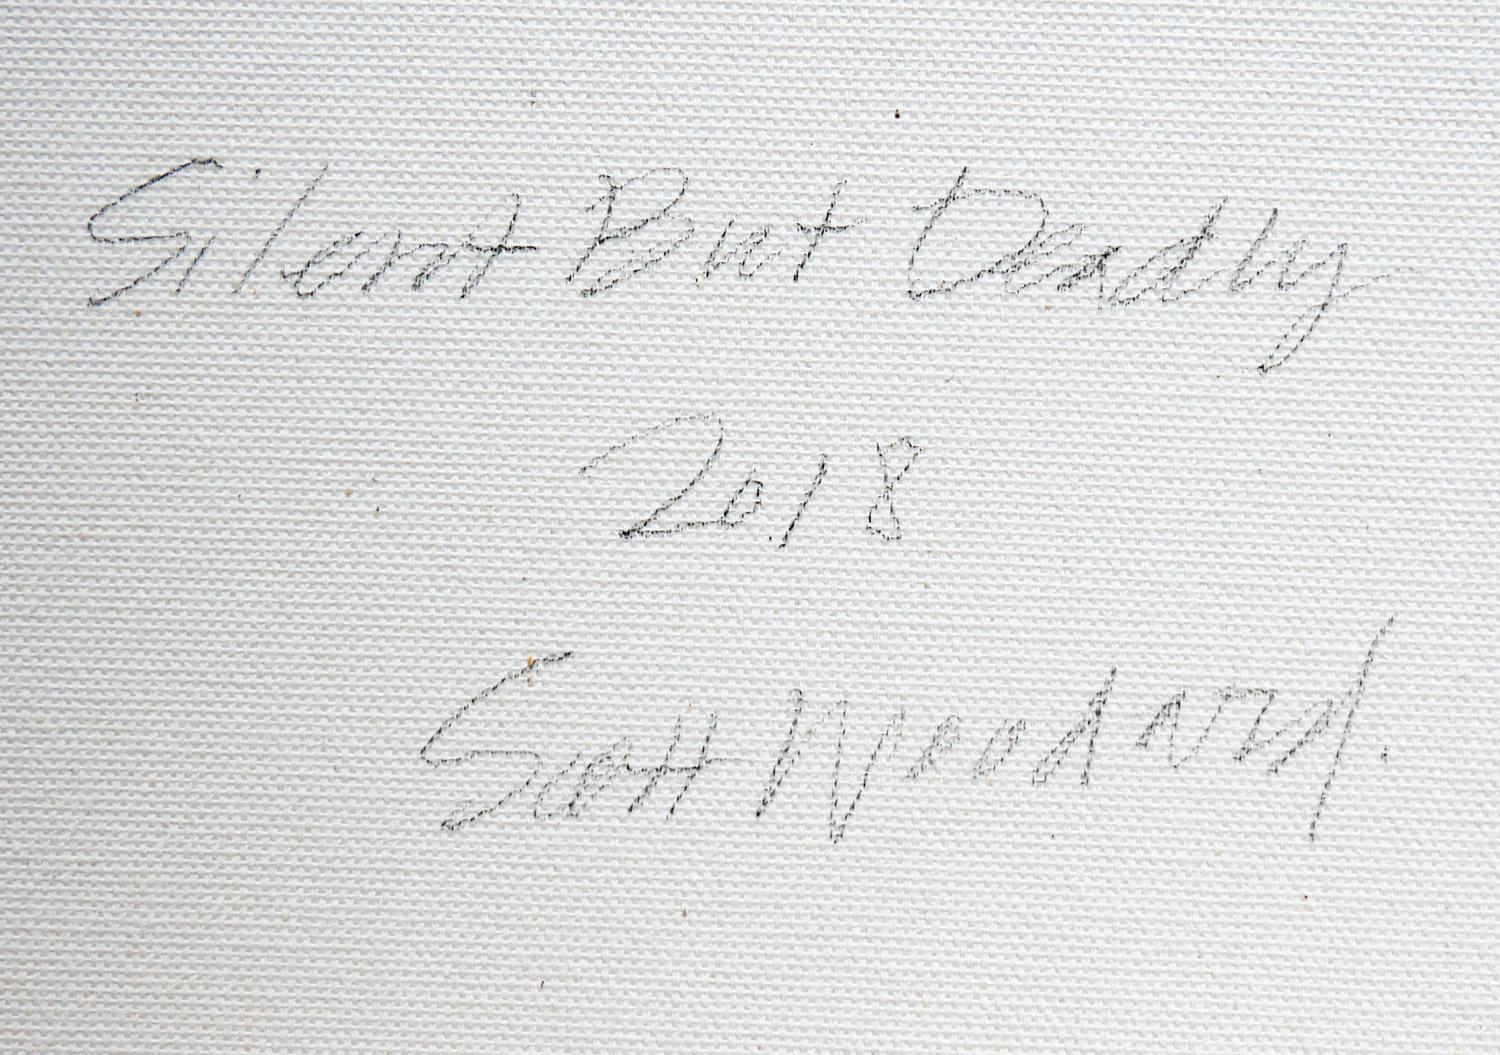 Silent But Deadly
2018
Scott Woodward.